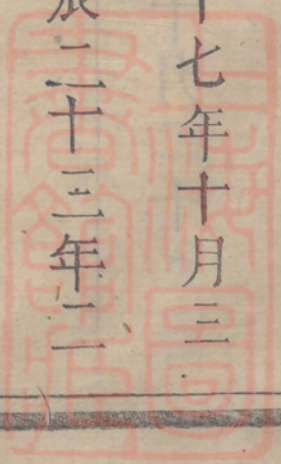 七年十月三
辰二十三年二